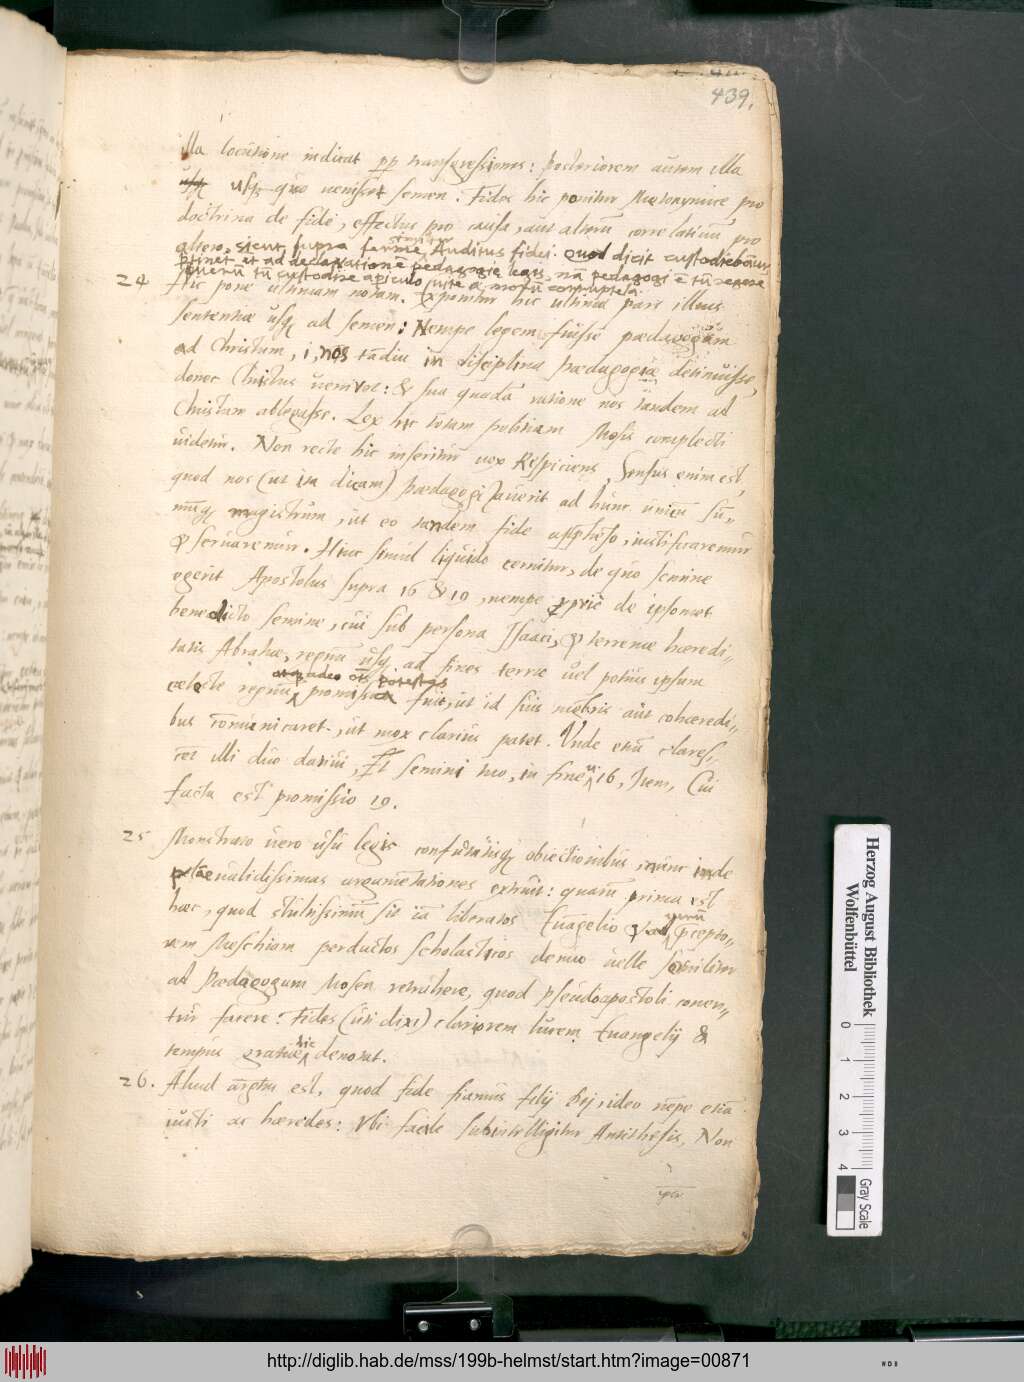 439.
illa locutione indicat pp transgressiones: posteriorem autem illa
usq quo venisset semen. Fides hic ponitur Metonymice, pro
doctrina de fide, effectus pro causa, aut alterū correlativū pro
altero, sicut supra ferme Auditus fidei. Quod dicit custodiebamur
ptinet et ad declarationē pedagogie legis, nā pedagogi ē tū regere
iuvenū tū custodire a periculo
24 Hic pone ultimam notam. Exponitur hic ultima pars illius
sententiæ usq ad semen: Nempe legem fuisse pædagogum
ad Christum, i, nos tādiu in disciplina pædagogiæ detinuisse,
donec Christus veniret: & sua quadā ratione nos tandem ad
Christum ablegasse. Lex hic totam politiam Mosis complecti
videtur. Non recte hic inseritur vox Respiciens, Sensus enim est,
quod nos (ut ita dicam) pædagogizaverit ad hunc unicū su„
mūq magistrum, ut eo tandem fide apprehēso, iustificaremur
& servaremur. Hinc simul liquido cernitur, de quo semine
egerit Apostolus supra 16 & 19, nempe de ipsomet
benedicto semine, cui sub persona Isaaci, & terrenæ hæredi„
tatis Abrahæ, regnū usq ad fines terræ vel potius ipsum
atq adeo oīs potestas
cæleste regnū promissa fuit, ut id suis mēbris aut cohæredi„
bus cōmunicaret, ut mox clarius patet. Unde etiā clares„
cet illi duo dativi, Et semini tuo, in fine vi 16, Item, Cui
facta est promissio 19.
25 Monstrato vero usu legis confutatisq obiectionibus, nunc inde
validissimas argumētationes extruit: quarū prima est
hæc, quod stultissimū sit iā liberatos Euāgelio & ad verū pcepto„
rem Messiam perductos scholasticos denuo velle serviliter
ad Pædagogum Mosen retrahere, quod pseudoapostoli conen„
tur facere: Fides (uti dixi) clariorem lucem Euangelij &
tempus gratiæ hic denotat.
26. Aliud argtm est, quod fide fiamus filij Dej ideo nēpe etiā
iusti ac hæredes: Ubi facile subintelligitur Antithesis, Non
Herzog August Bibliothek
Wolfenbüttel
0 1 2 3 4
Gray Scale
http://diglib.hab.de/mss/199b-helmst/start.htm?image=00871
WDB